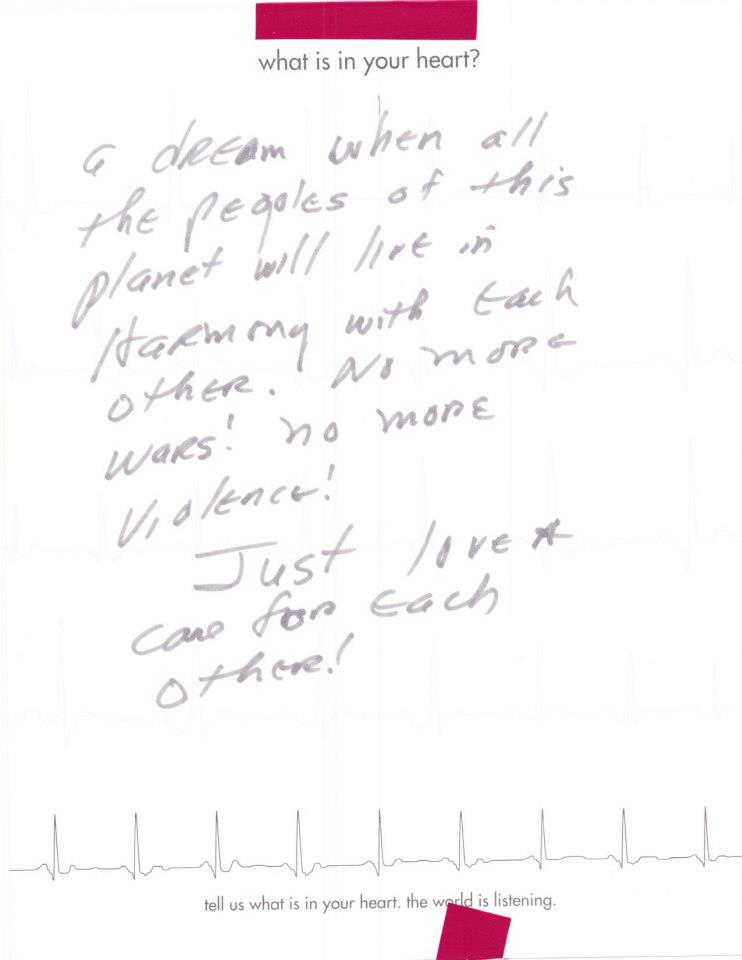 what is in your heart?
a dream when all
the peoples of this
planet will live in
Harmony with Each
other. No more
wars! no more
Violence!
Just love &
care for Each
other!
tell us what is in your heart. the world is listening.